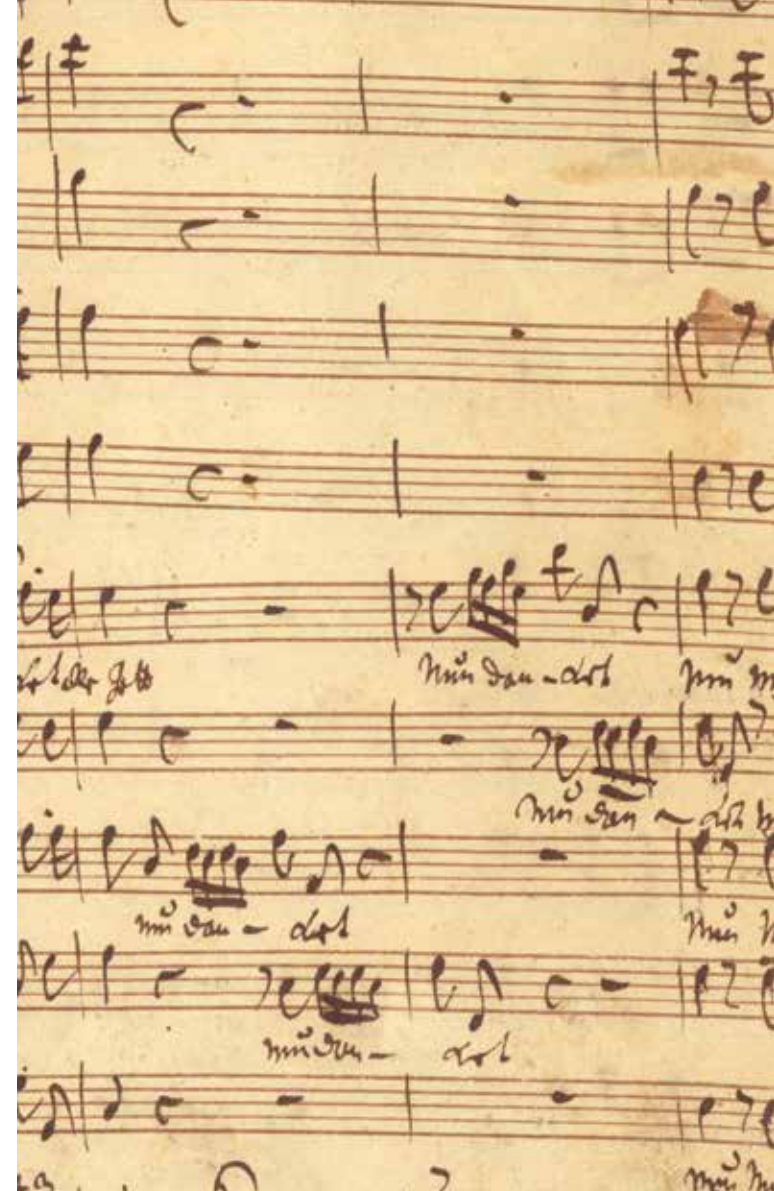 ket alle Gott nun dan-ket nun
nun dan - ket
nun dan - ket nun
nun dan - ket
nun